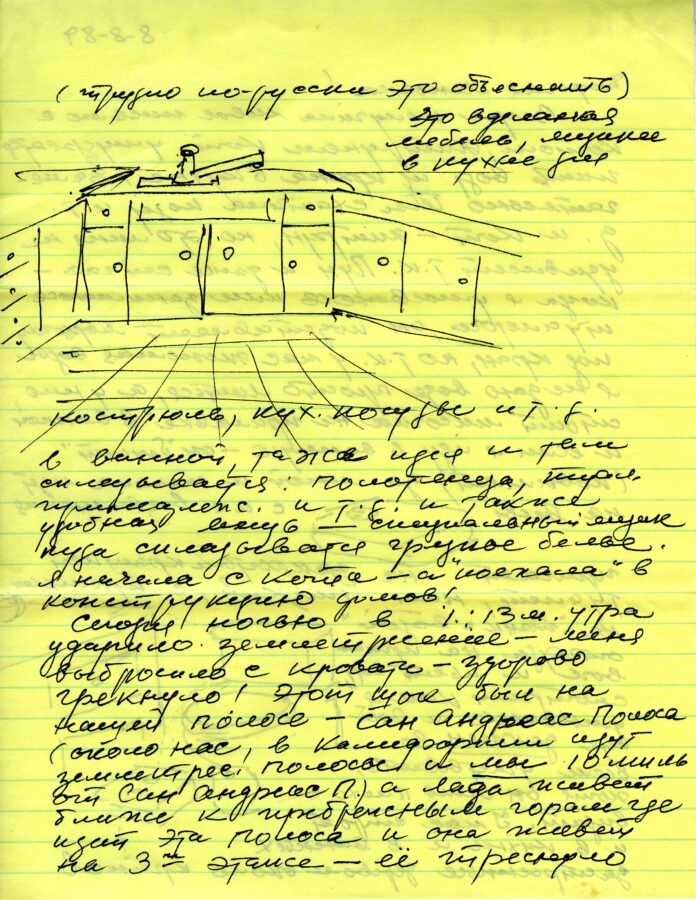 8-8-89
(трудно по-русски это объяснить)
Это вделанная
мебель, ящики
в кухне для
кострюль, кух. посуды и т. д.
в ванной, та же идея и там
складывается: полотенца, туал.
принадлеж. и т.д. и также
удобная вещь — специальный ящик
куда складывается грязное белье.
Я начала с кота — а "поехала" в
конструкцию домов!
Сегодня ночью в 1:13 м. утра
ударило землетресение — меня
выбросило с кровати — здорово
грекнуло! Этот шок был на
нашей полосе — Сан Андреас Полоса
(около нас, в Калифорнии идут
землетрес. полосы и мы 10 миль
от Сан Андреас П.) а Лада живет
ближе к прибрежным горам где
идет эта полоса и она живет
на 3м этаже — её треснуло